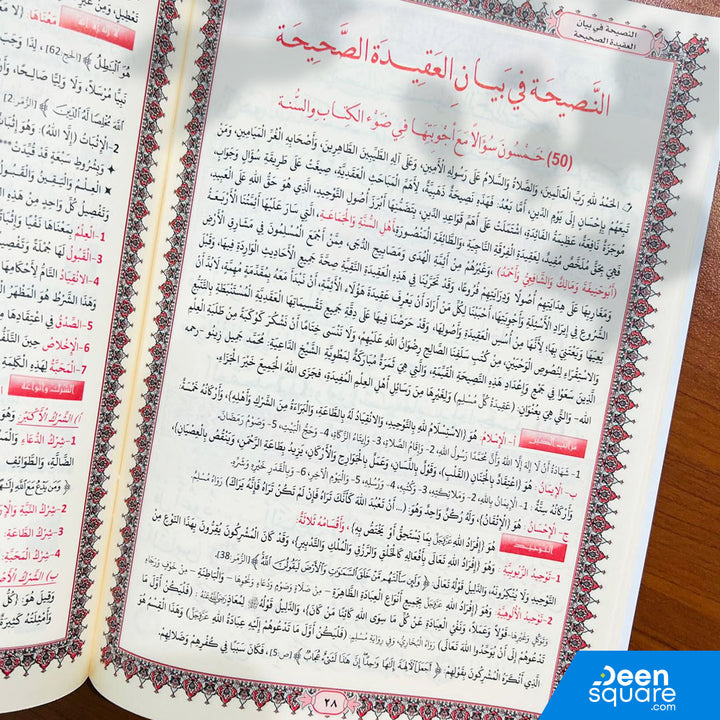 النصيحة في بيان
العقيدة الصحيحة
النَّصِيحَة فِي بَيَانِ العَقِيدَة الصَّحِيحَة
(50) خَمْسُون سُؤَالاً مَعَ أَجْوِبَتِهَا فِي ضَوْءِ الكِتَابِ والسُّنة
الحَمْدُ للهِ رَبِّ العَالَمِينَ، وَالصَّلَاةُ وَالسَّلَامُ عَلَى رَسُولِهِ الأَمِينِ، وَعَلَى آلِهِ الطَّيِّبِينَ الطَّاهِرِينَ، وَأَصْحَابِهِ الغُرِّ المَيَامِينِ، وَمَنْ
تَبِعَهُمْ بِإِحْسَانٍ إِلَى يَوْمِ الدِّينِ، أَمَّا بَعْدُ: فَهَذِهِ نَصِيحَةٌ ذَهَبِيَّةٌ، لِأَهَمِّ المَبَاحِثِ العَقَدِيَّةِ، صِيغَتْ عَلَى طَرِيقَةِ سُؤَالٍ وَجَوَابٍ،
مُوجَزَةٌ نَافِعَةٌ، عَظِيمَةُ الفَائِدَةِ، اشْتَمَلَتْ عَلَى أَهَمِّ قَوَاعِدِ الدِّينِ، يَتَضَمَّنُهَا أَبْرَزُ أُصُولِ التَّوْحِيدِ، الَّذِي هُوَ حَقُّ اللهِ عَلَى العَبِيدِ،
فَهِيَ بِحَقٍّ مُلَخَّصٌ مُفِيدٌ، لِعَقِيدَةِ الفِرْقَةِ النَّاجِيَةِ، وَالطَّائِفَةِ المَنْصُورَةِ أَهْلِ السُّنَّةِ وَالجَمَاعَةِ، الَّتِي سَارَ عَلَيْهَا أَئِمَّتُنَا الأَرْبَعَةُ
(أَبُو حَنِيفَةَ وَمَالِكُ وَالشَّافِعِيُّ وَأَحْمَدُ)، وَغَيْرُهُمْ مِنْ أَئِمَّةِ الهُدَى وَمَصَابِيحِ الدُّجَى، مِمَّنْ أَجْمَعَ المُسْلِمُونَ فِي مَشَارِقِ الأَرْضِ
وَمَغَارِبِهَا عَلَى هِدَايَتِهِمْ أُصُولًا وَدِرَايَتِهِمْ فُرُوعًا، وَقَدْ تَحَرَّيْنَا فِي هَذِهِ العَقِيدَةِ النَّقِيَّةِ صِحَّةَ جَمِيعِ الأَحَادِيثِ الوَارِدَةِ فِيهَا، وَقَبْلَ
الشُّرُوعِ فِي إِيرَادِ الأَسْئِلَةِ وَأَجْوِبَتِهَا، أَحْبَبْنَا لِكُلِّ مَنْ أَرَادَ أَنْ يَعْرِفَ عَقِيدَةَ هَؤُلَاءِ الأَئِمَّةِ، أَنْ نَبْدَأَ مَعَهُ مُقَدِّمَةً مُهِمَّةً، لَابُدَّ أَنْ
يَعِيَهَا وَيَعْتَنِيَ بِهَا؛ لِأَنَّهَا مِنْ أُسُسِ العَقِيدَةِ وَأُصُولِهَا، وَقَدْ حَرَصْنَا فِيهَا عَلَى دِقَّةِ جَمِيعِ تَقْسِيمَاتِهَا العَقَدِيَّةِ المُسْتَنْبَطَةِ بِالتَّتَبُّعِ
وَالاسْتِقْرَاءِ لِنُصُوصِ الوَحْيَيْنِ، مِنْ كُتُبِ سَلَفِنَا الصَّالِحِ رِضْوَانُ اللهِ عَلَيْهِمْ، وَلَا نَنْسَى خِتَامًا أَنْ نَشْكُرَ كَوْكَبَةً مِنْ طَلَبَةِ العِلْمِ
وَالَّذِينَ سَعَوْا فِي جَمْعِ وَإِعْدَادِ هَذِهِ النَّصِيحَةِ القَيِّمَةِ، وَالَّتِي هِيَ ثَمَرَةٌ مُبَارَكَةٌ لِمَطْوِيَّةِ الشَّيْخِ الدَّاعِيَةِ: مُحَمَّد جَمِيل زِينُو -رحمه
الله- وَالَّتِي هِيَ بِعُنْوَانِ: (عَقِيدَةُ كُلِّ مُسْلِمٍ) وَلِغَيْرِهَا مِنْ رَسَائِلِ أَهْلِ العِلْمِ المُفِيدَةِ، فَجَزَى اللهُ الجَمِيعَ خَيْرَ الجَزَاءِ.
أ- الإِسْلَامُ: هُوَ (الاسْتِسْلَامُ للهِ بِالتَّوْحِيدِ، وَالانْقِيَادُ لَهُ بِالطَّاعَةِ، وَالبَرَاءَةُ مِنَ الشِّرْكِ وَأَهْلِهِ)، وَأَرْكَانُهُ خَمْسَةٌ:
1- شَهَادَةُ أَنْ لَا إِلَهَ إِلَّا اللهُ وَأَنَّ مُحَمَّدًا رَسُولُ اللهِ، 2- وَإِقَامُ الصَّلَاةِ، 3- وَإِيتَاءُ الزَّكَاةِ، 4- وَحَجُّ البَيْتِ، 5- وَصَوْمُ رَمَضَانَ.
ب- الإِيمَانُ: هُوَ (اعْتِقَادٌ بِالجَنَانِ (القَلْبِ)، وَقَوْلٌ بِاللِّسَانِ، وَعَمَلٌ بِالجَوَارِحِ وَالأَرْكَانِ، يَزِيدُ بِطَاعَةِ الرَّحْمَنِ، وَيَنْقُصُ بِالعِصْيَانِ)،
وَأَرْكَانُهُ سِتَّةٌ: 1- الإِيمَانُ بِاللهِ، 2- وَمَلَائِكَتِهِ، 3- وَكُتُبِهِ، 4- وَرُسُلِهِ، 5- وَاليَوْمِ الآخِرِ، 6- وَبِالقَدَرِ خَيْرِهِ وَشَرِّهِ.
ج- الإِحْسَانُ: هُوَ (الإِتْقَانُ)، وَلَهُ رُكْنٌ وَاحِدٌ وَهُوَ: (... أَنْ تَعْبُدَ اللهَ كَأَنَّكَ تَرَاهُ فَإِنْ لَمْ تَكُنْ تَرَاهُ فَإِنَّهُ يَرَاكَ) رَوَاهُ مُسْلِمٌ.
التوحيد هُوَ (إِفْرَادُ اللهِ عَزَّوَجَلَّ بِمَا يَسْتَحِقُّ أَوْ يَخْتَصُّ بِهِ)، وَأَقْسَامُهُ ثَلَاثَةٌ:
1- تَوْحِيدُ الرُّبُوبِيَّةِ: هُوَ (إِفْرَادُ اللهِ تَعَالَى بِأَفْعَالِهِ كَالخَلْقِ وَالرَّزْقِ وَالمُلْكِ وَالتَّدْبِيرِ)، وَقَدْ كَانَ المُشْرِكُونَ يُقِرُّونَ بِهَذَا النَّوْعِ مِنَ
التَّوْحِيدِ وَلَا يُنْكِرُونَهُ، وَالدَّلِيلُ قَوْلُهُ تَعَالَى: ﴿ وَلَئِن سَأَلْتَهُم مَّنْ خَلَقَ السَّمَوَاتِ وَالْأَرْضَ لَيَقُولُنَّ اللَّهُ ﴾ [الزُّمَر:38].
2- تَوْحِيدُ الأُلُوهِيَّةِ: هُوَ (إِفْرَادُ اللهِ عَزَّوَجَلَّ بِجَمِيعِ أَنْوَاعِ العِبَادَةِ الظَّاهِرَةِ - مِنْ صَلَاةٍ وَصَوْمٍ وَدُعَاءٍ وَنَحْوِهَا - وَالبَاطِنَةِ - مِنْ خَوْفٍ وَرَجَاءٍ
وَتَوَكُّلٍ وَغَيْرِهَا- قَوْلًا وَعَمَلًا، وَنَفْيُ العِبَادَةِ عَنْ كُلِّ مَا سِوَى اللهِ كَائِنًا مَنْ كَانَ)، وَالدَّلِيلُ قَوْلُهُ ﷺ لِمُعَاذٍ: (فَلْيَكُنْ أَوَّلَ مَا
تَدْعُوهُمْ إِلَى أَنْ يُوَحِّدُوا اللهَ تَعَالَى) رَوَاهُ البُخَارِيُّ، وَفِي رِوَايَةِ مُسْلِمٍ: (فَلْيَكُنْ أَوَّلَ مَا تَدْعُوهُمْ إِلَيْهِ عِبَادَةُ اللهِ عَزَّوَجَلَّ)، وَهَذَا القِسْمُ هُوَ
الَّذِي أَنْكَرَهُ المُشْرِكُونَ بِقَوْلِهِمْ: ﴿ أَجَعَلَ الْآلِهَةَ إِلَهًا وَاحِدًا إِنَّ هَذَا لَشَيْءٌ عُجَابٌ ﴾ [ص:5]، فَكَانَ سَبَبًا فِي كُفْرِهِمْ وَضَلَالِهِمْ.
٢٨
Deen
square
.com